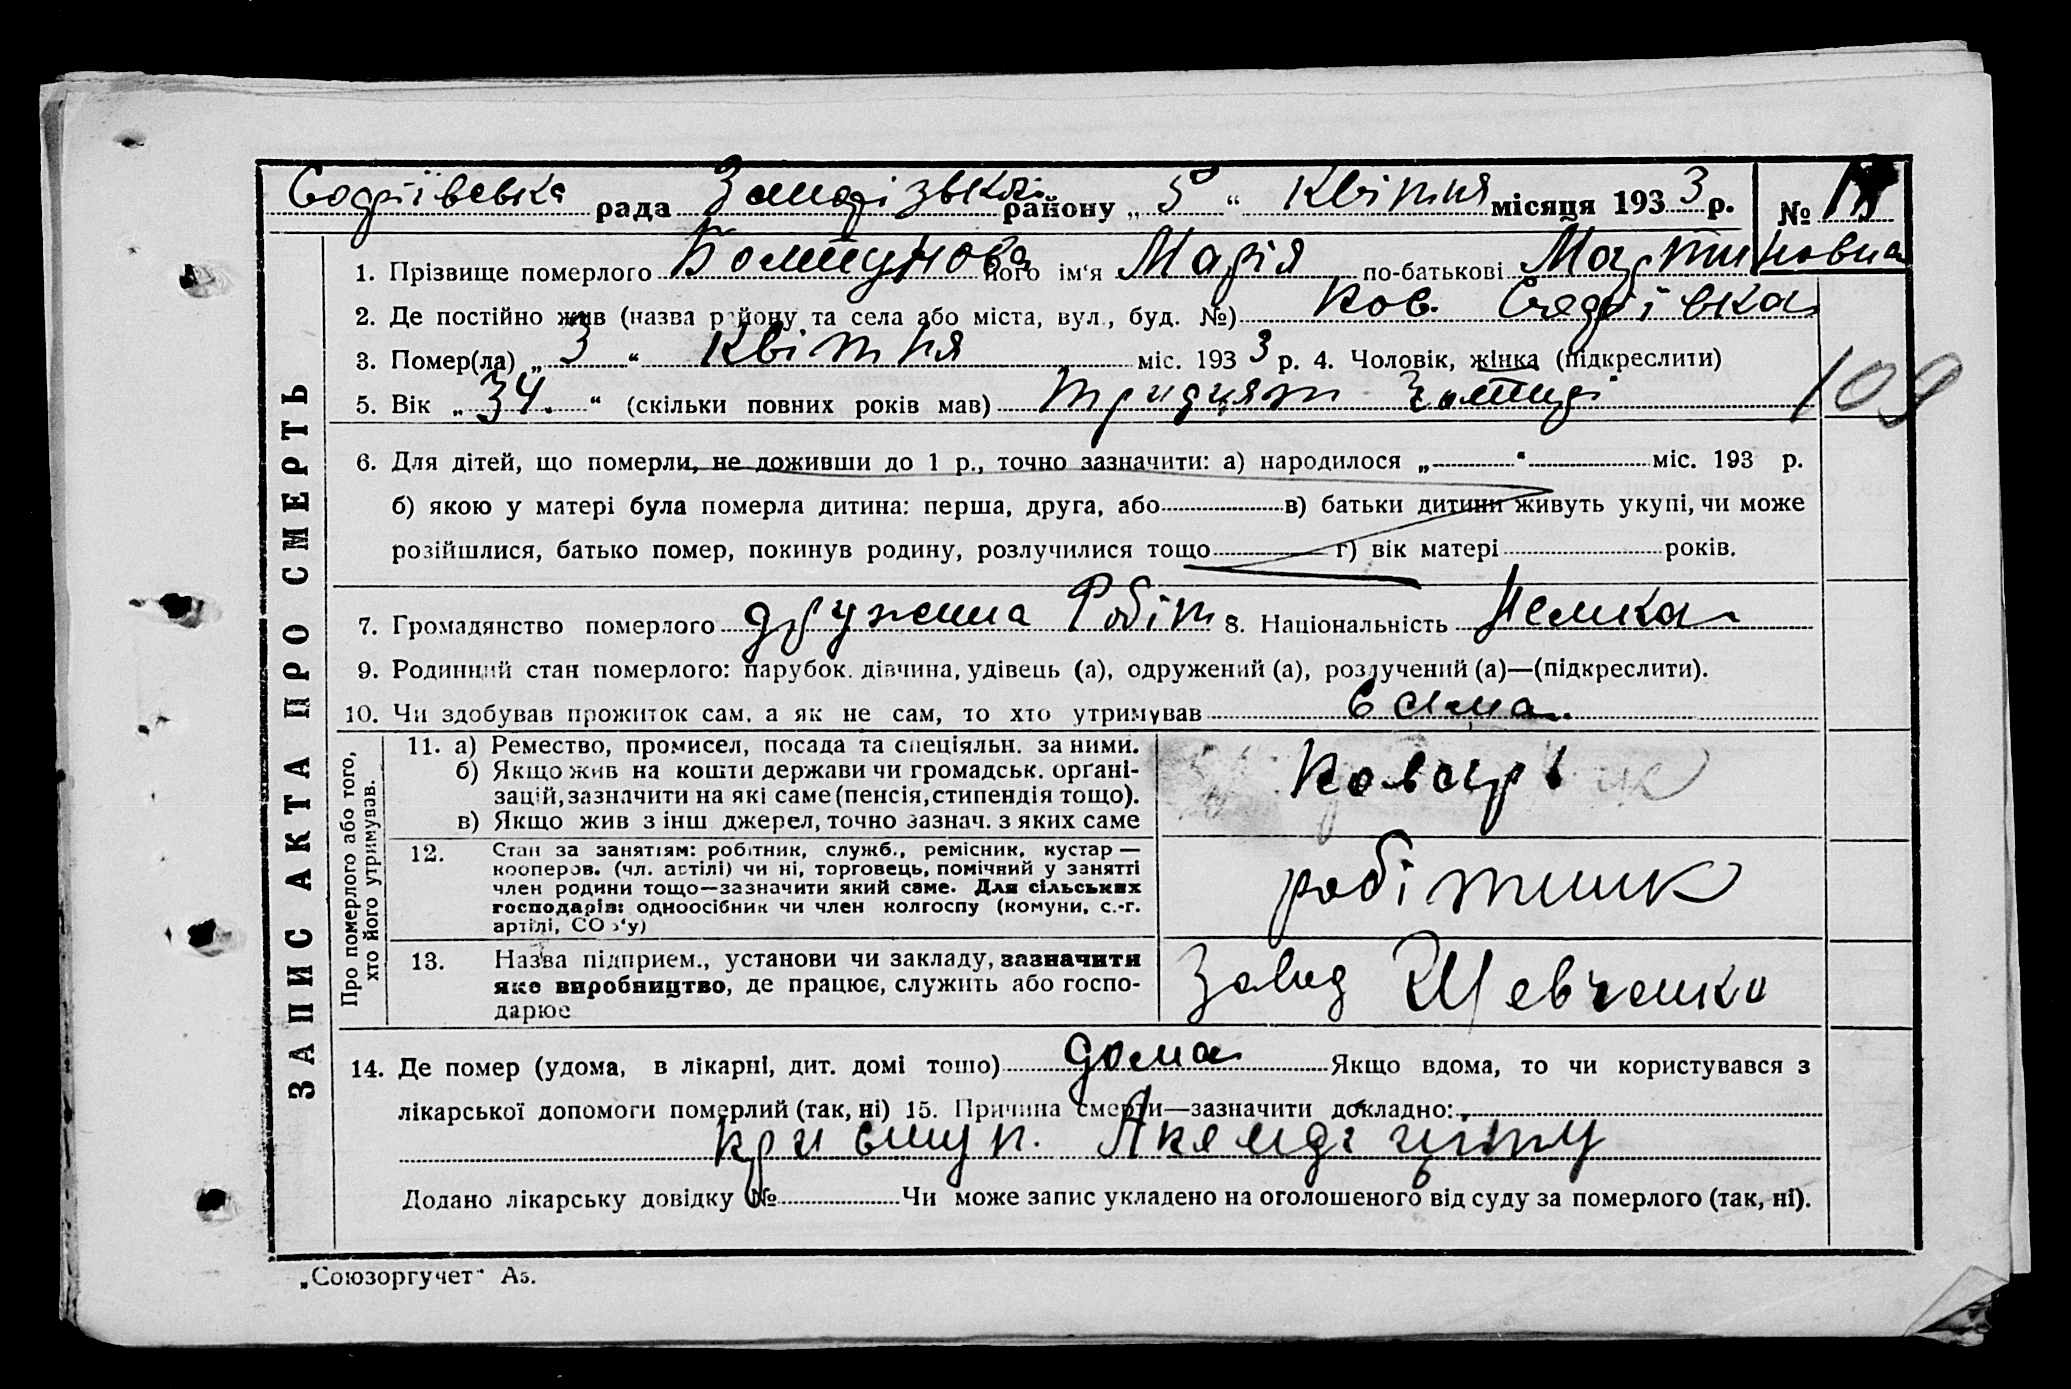 Софіївська рада Запорізької району „ 5 “ Квітня місяця 1933 р. №
1. Прізвище померлого Болтунова його ім‘я Марія по-батькові Мартиновна
2. Де постійно жив (назва району та села або міста, вул., буд. №) Кол. Софіївка
3. Помер(ла) „ 3 “ Квітня міс. 1933 р. 4. Чоловік, жінка (підкреслити)
5. Вік „ 34. “ (скільки повних років мав) тридцят чотирі
109
6. Для дітей, що померли, не доживши до 1 р., точно зазначити: а) народилося „ “ міс. 193 р.
б) якою у матері була померла дитина: перша, друга, або в) батьки дитини живуть укупі, чи може
розійшлися, батько помер, покинув родину, розлучилися тощо г) вік матері років.
7. Громадянство померлого дружина Робіт 8. Національність Немка
9. Родинний стан померлого: парубок. дівчина, удівець (а), одружений (а), розлучений (а)—(підкреслити).
10. Чи здобував прожиток сам, а як не сам, то хто утримував
ЗАПИС АКТА ПРО СМЕРТЬ
Про померлого або того, хто його утримував.
11. а) Ремество, промисел, посада та спеціяльн. за ними.
б) Якщо жив на кошти держави чи громадськ. орґані-
зацій, зазначити на які саме (пенсія, стипендія тощо).
в) Якщо жив з інш джерел, точно зазнач. з яких саме
12. Стан за занятіям: робітник, служб., ремісник, кустар —
кооперов. (чл. астілі) чи ні, торговець, помічний у занятті
член родини тощо—зазначити який саме. Для сільських
господарів: одноосібник чи член колгоспу (комуни, с.-г.
артілі, СО з‘у)
робітник
13. Назва підприєм., установи чи закладу, зазначити
яке виробництво, де працює, служить або госпо-
дарює
Завод Шевченка
14. Де помер (удома, в лікарні, дит. домі тощо) дома Якщо вдома, то чи користувався з
лікарської допомоги померлий (так, ні) 15. Причина смерти—зазначити докладно:
Додано лікарську довідку № Чи може запис укладено на оголошеного від суду за померлого (так, ні).
„Союзоргучет“ А5.